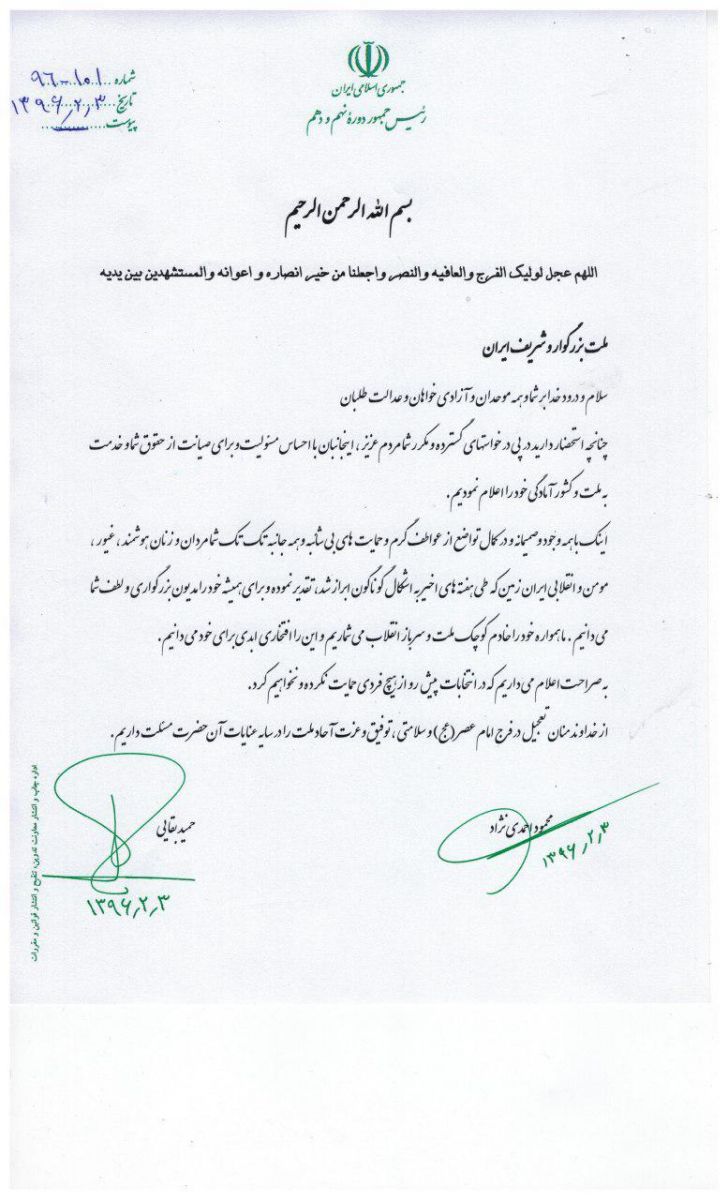 جمهوری اسلامی ایران
رئیس جمهور دورهٔ نهم و دهم
شماره ۱۰۱-۹۶
تاریخ ۱۳۹۶,۲,۳
پیوست
بسم الله الرحمن الرحیم
اللهم عجل لولیک الفرج والعافیه والنصر واجعلنا من خیر انصاره و اعوانه والمستشهدین بین یدیه
ملت بزرگوار و شریف ایران
سلام و درود خدا بر شما و همه موحدان و آزادی خواهان و عدالت طلبان
چنانچه استحضار دارید در پی درخواستهای گسترده و مکرر شما مردم عزیز، اینجانبان با احساس مسئولیت و برای صیانت از حقوق شما و خدمت
به ملت و کشور آمادگی خود را اعلام نمودیم.
اینک با همه وجود و صمیمانه و در کمال تواضع از عواطف گرم و حمایت های بی شائبه و همه جانبه تک تک شما مردان و زنان هوشمند، غیور،
مومن و انقلابی ایران زمین که طی هفته های اخیر به اشکال گوناگون ابراز شد، تقدیر نموده و برای همیشه خود را مدیون بزرگواری و لطف شما
می دانیم. ما همواره خود را خادم کوچک ملت و سرباز انقلاب می شماریم و این را افتخاری ابدی برای خود می دانیم.
به صراحت اعلام می داریم که در انتخابات پیش رو از هیچ فردی حمایت نکرده و نخواهیم کرد.
از خداوند منان تعجیل در فرج امام عصر(عج) و سلامتی، توفیق و عزت آحاد ملت را در سایه عنایات آن حضرت مسئلت داریم.
محمود احمدی نژاد
۱۳۹۶,۲,۳
حمید بقایی
۱۳۹۶,۲,۳
اداره چاپ و انتشار معاونت تدوین، تنقیح و انتشار قوانین و مقررات